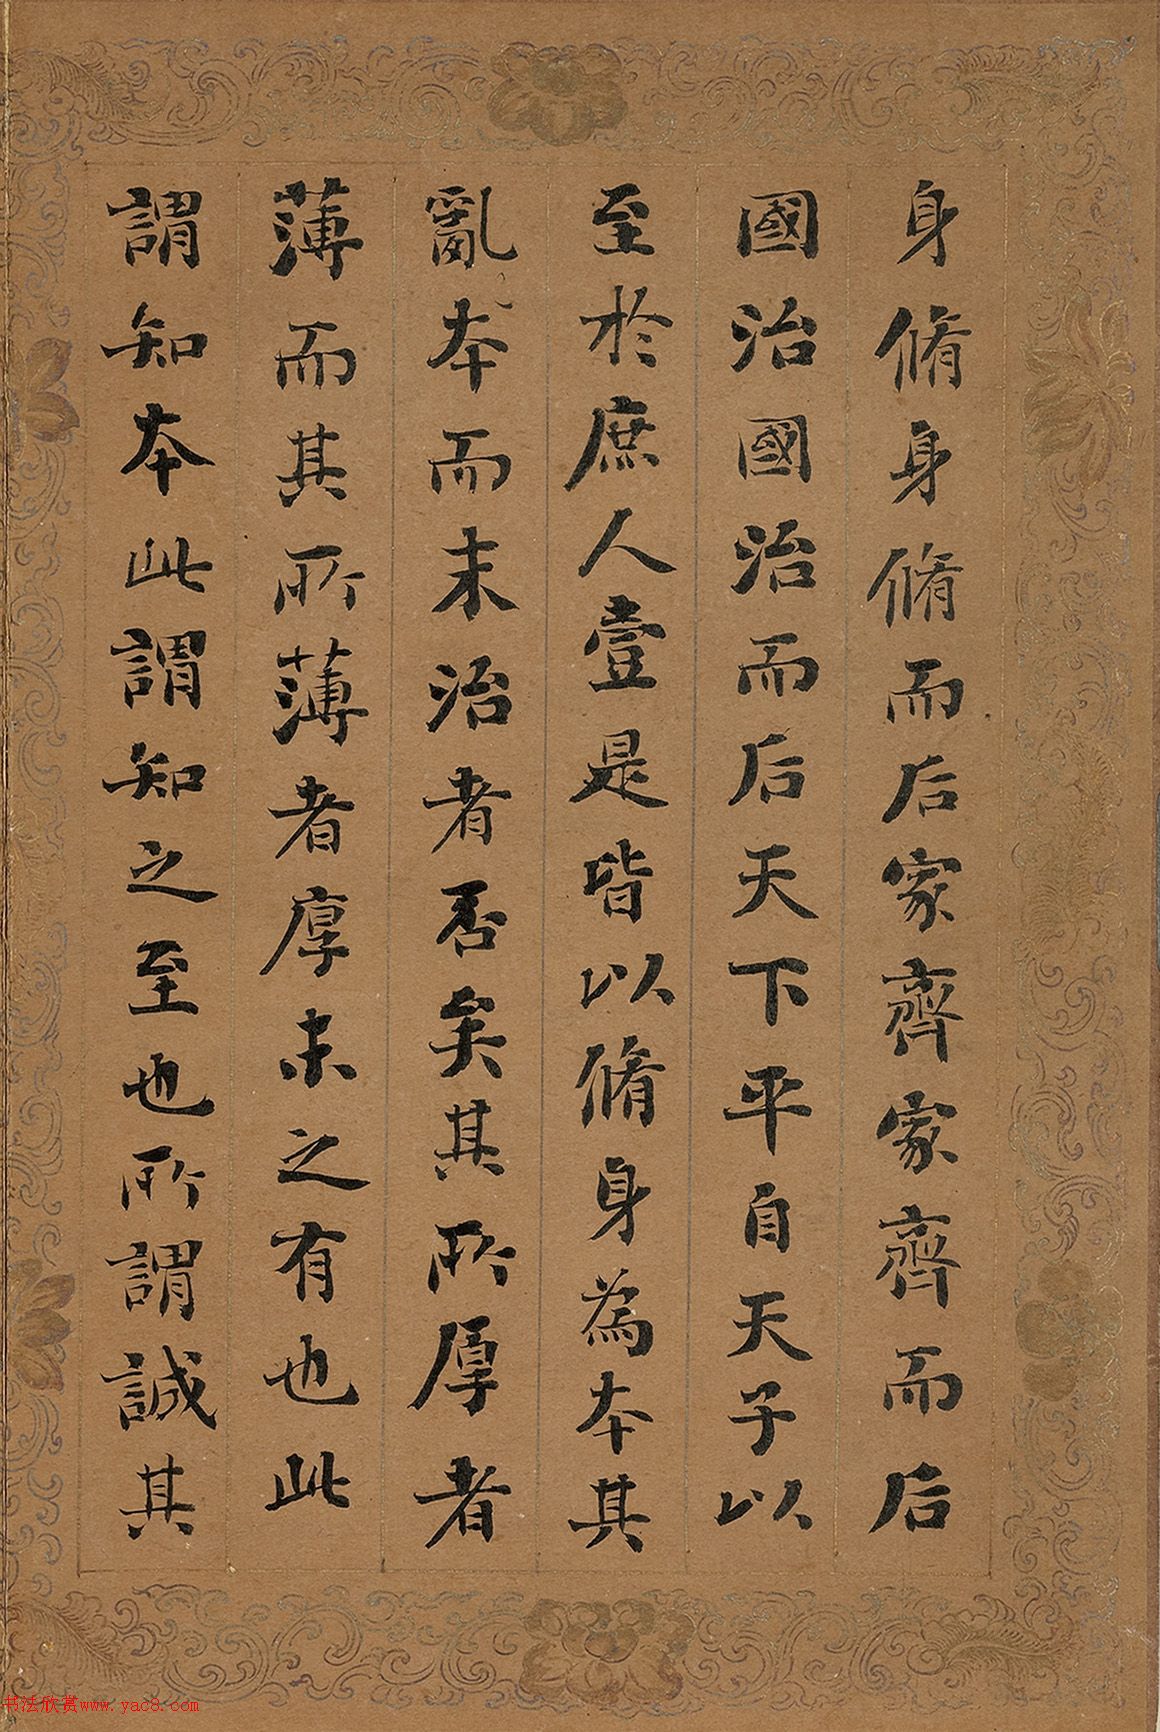 身脩身脩而后家齊家齊而后
國治國治而后天下平自天子以
至於庶人壹是皆以脩身為本其
亂本而末治者否矣其所厚者
薄而其所薄者厚未之有也此
謂知本此謂知之至也所謂誠其
书法欣赏www.yac8.com